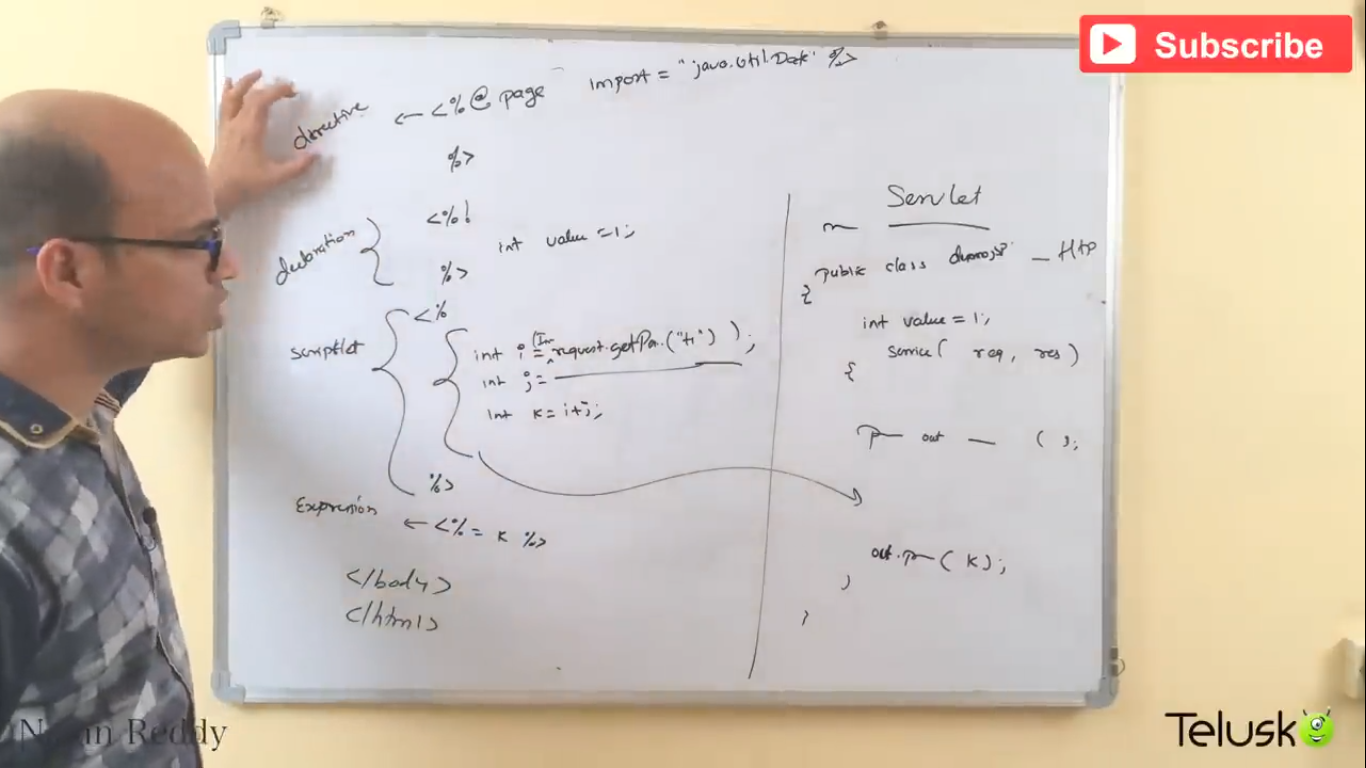 Subscribe
directive ← <%@ page import = "java.util.Date" %>
%>
<%!
declaration int value =1;
%>
scriptlet <%
int i = (In request.getPar.("t1") );
int j =
int k = i+j;
%>
Expression ← <%= k %>
</body>
</html>
Servlet
public class
{
int value = 1;
service( req, res)
{
out ( );
out. ( k);
}
}
Reddy
Telusko